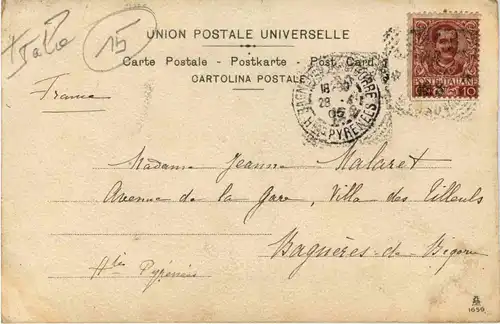 Italie
15
UNION POSTALE UNIVERSELLE
Carte Postale - Postkarte - Post Card
CARTOLINA POSTALE
POSTE ITALIANE
10
BAGNÈRES DE BIGORRE
18-30
28 - 4
05
HTES PYRENEES
France
Madame Jeanne Malaret
Avenue de la Gare, Villa des Tilleuls
Bagnères-de-Bigorre
Htes Pyrénées
1650